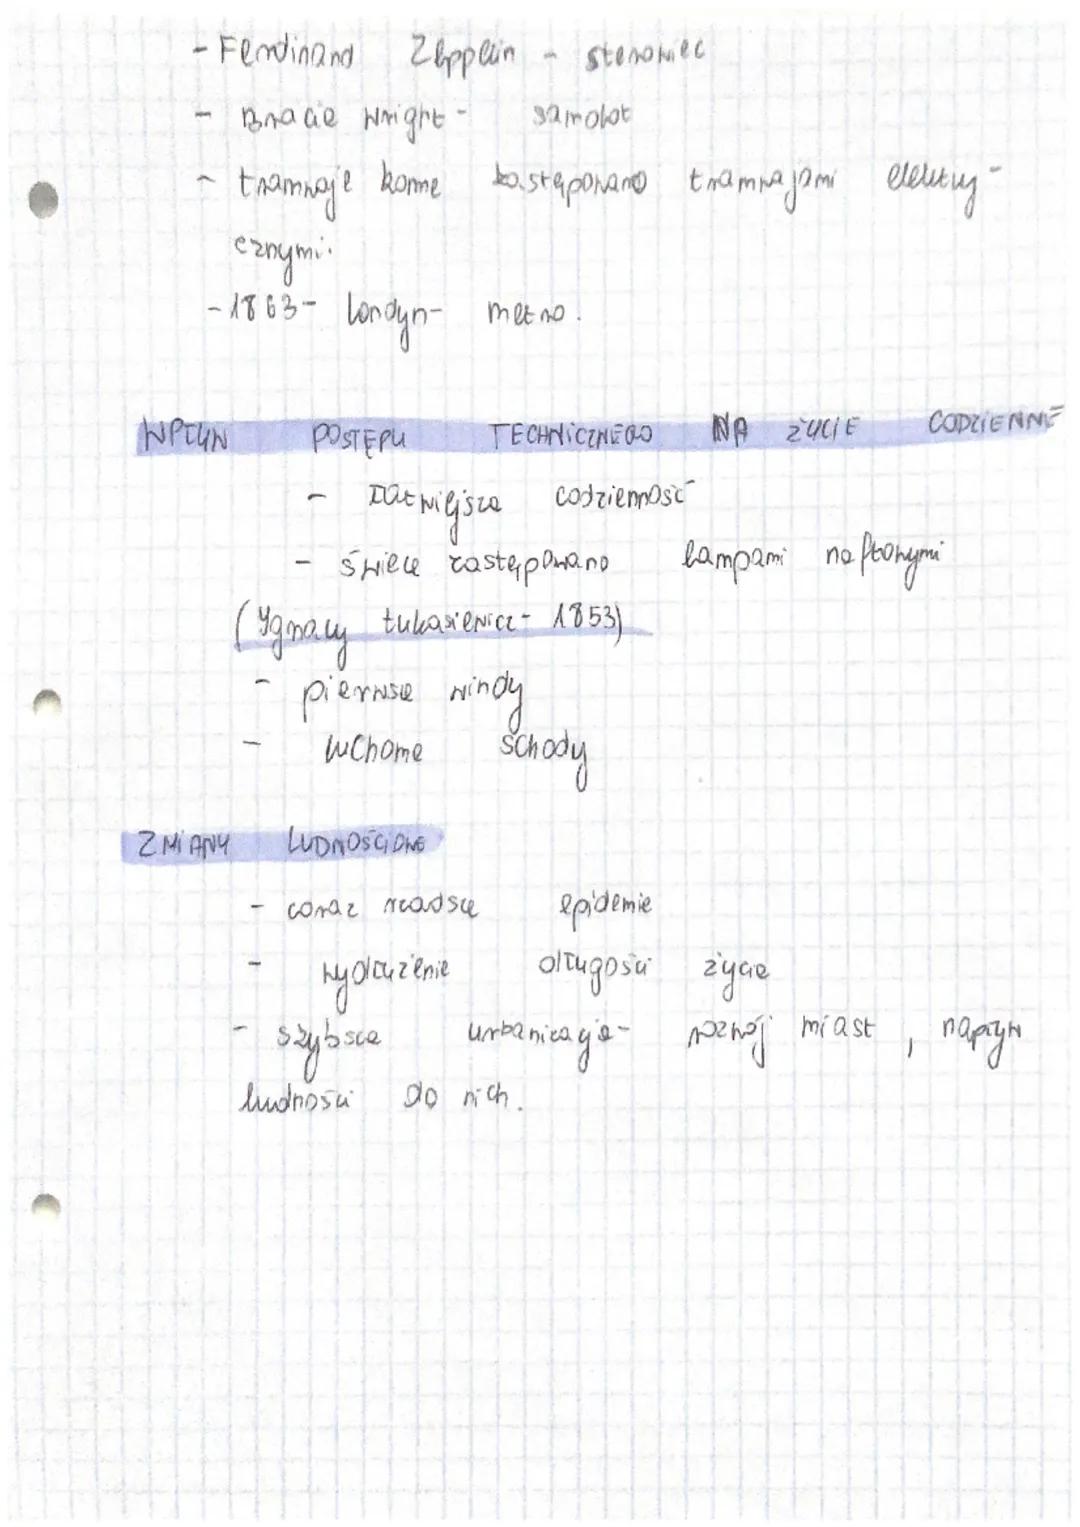 - Ferdinand Zeppelin - sterowiec
- Bracie Wright - samolot
- tramwaje konne zastępowano tramwajami elektry-
cznymi.
- 1863 - Londyn - metro.
WPŁYW POSTĘPU TECHNICZNEGO NA ŻYCIE CODZIENNE
- Łatwiejsza codzienność
- świece zastępowano lampami naftowymi
(Ignacy Łukasiewicz - 1853)
- pierwsze windy
- ruchome schody
ZMIANY LUDNOŚCIOWE
- coraz rzadsze epidemie
- wydłużenie długości życia
- szybsza urbanizacja - rozwój miast, napływ
ludności do nich.